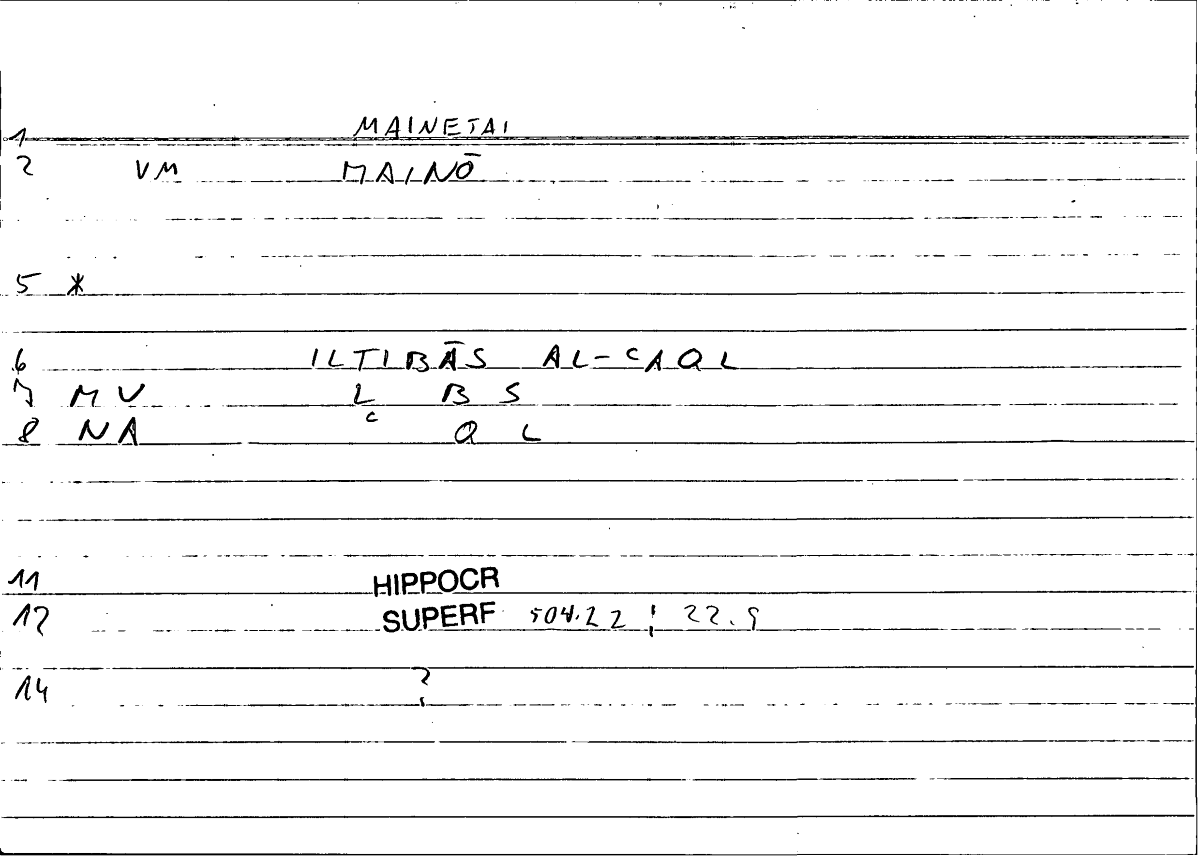 1 MAINETAI
2 VM MAINŌ
5 *
6 ILTIBĀS AL-ʿAQL
7 MV L B S
8 NA ʿ Q L
11 HIPPOCR
12 SUPERF 504.22 ; 22.9
14 ?